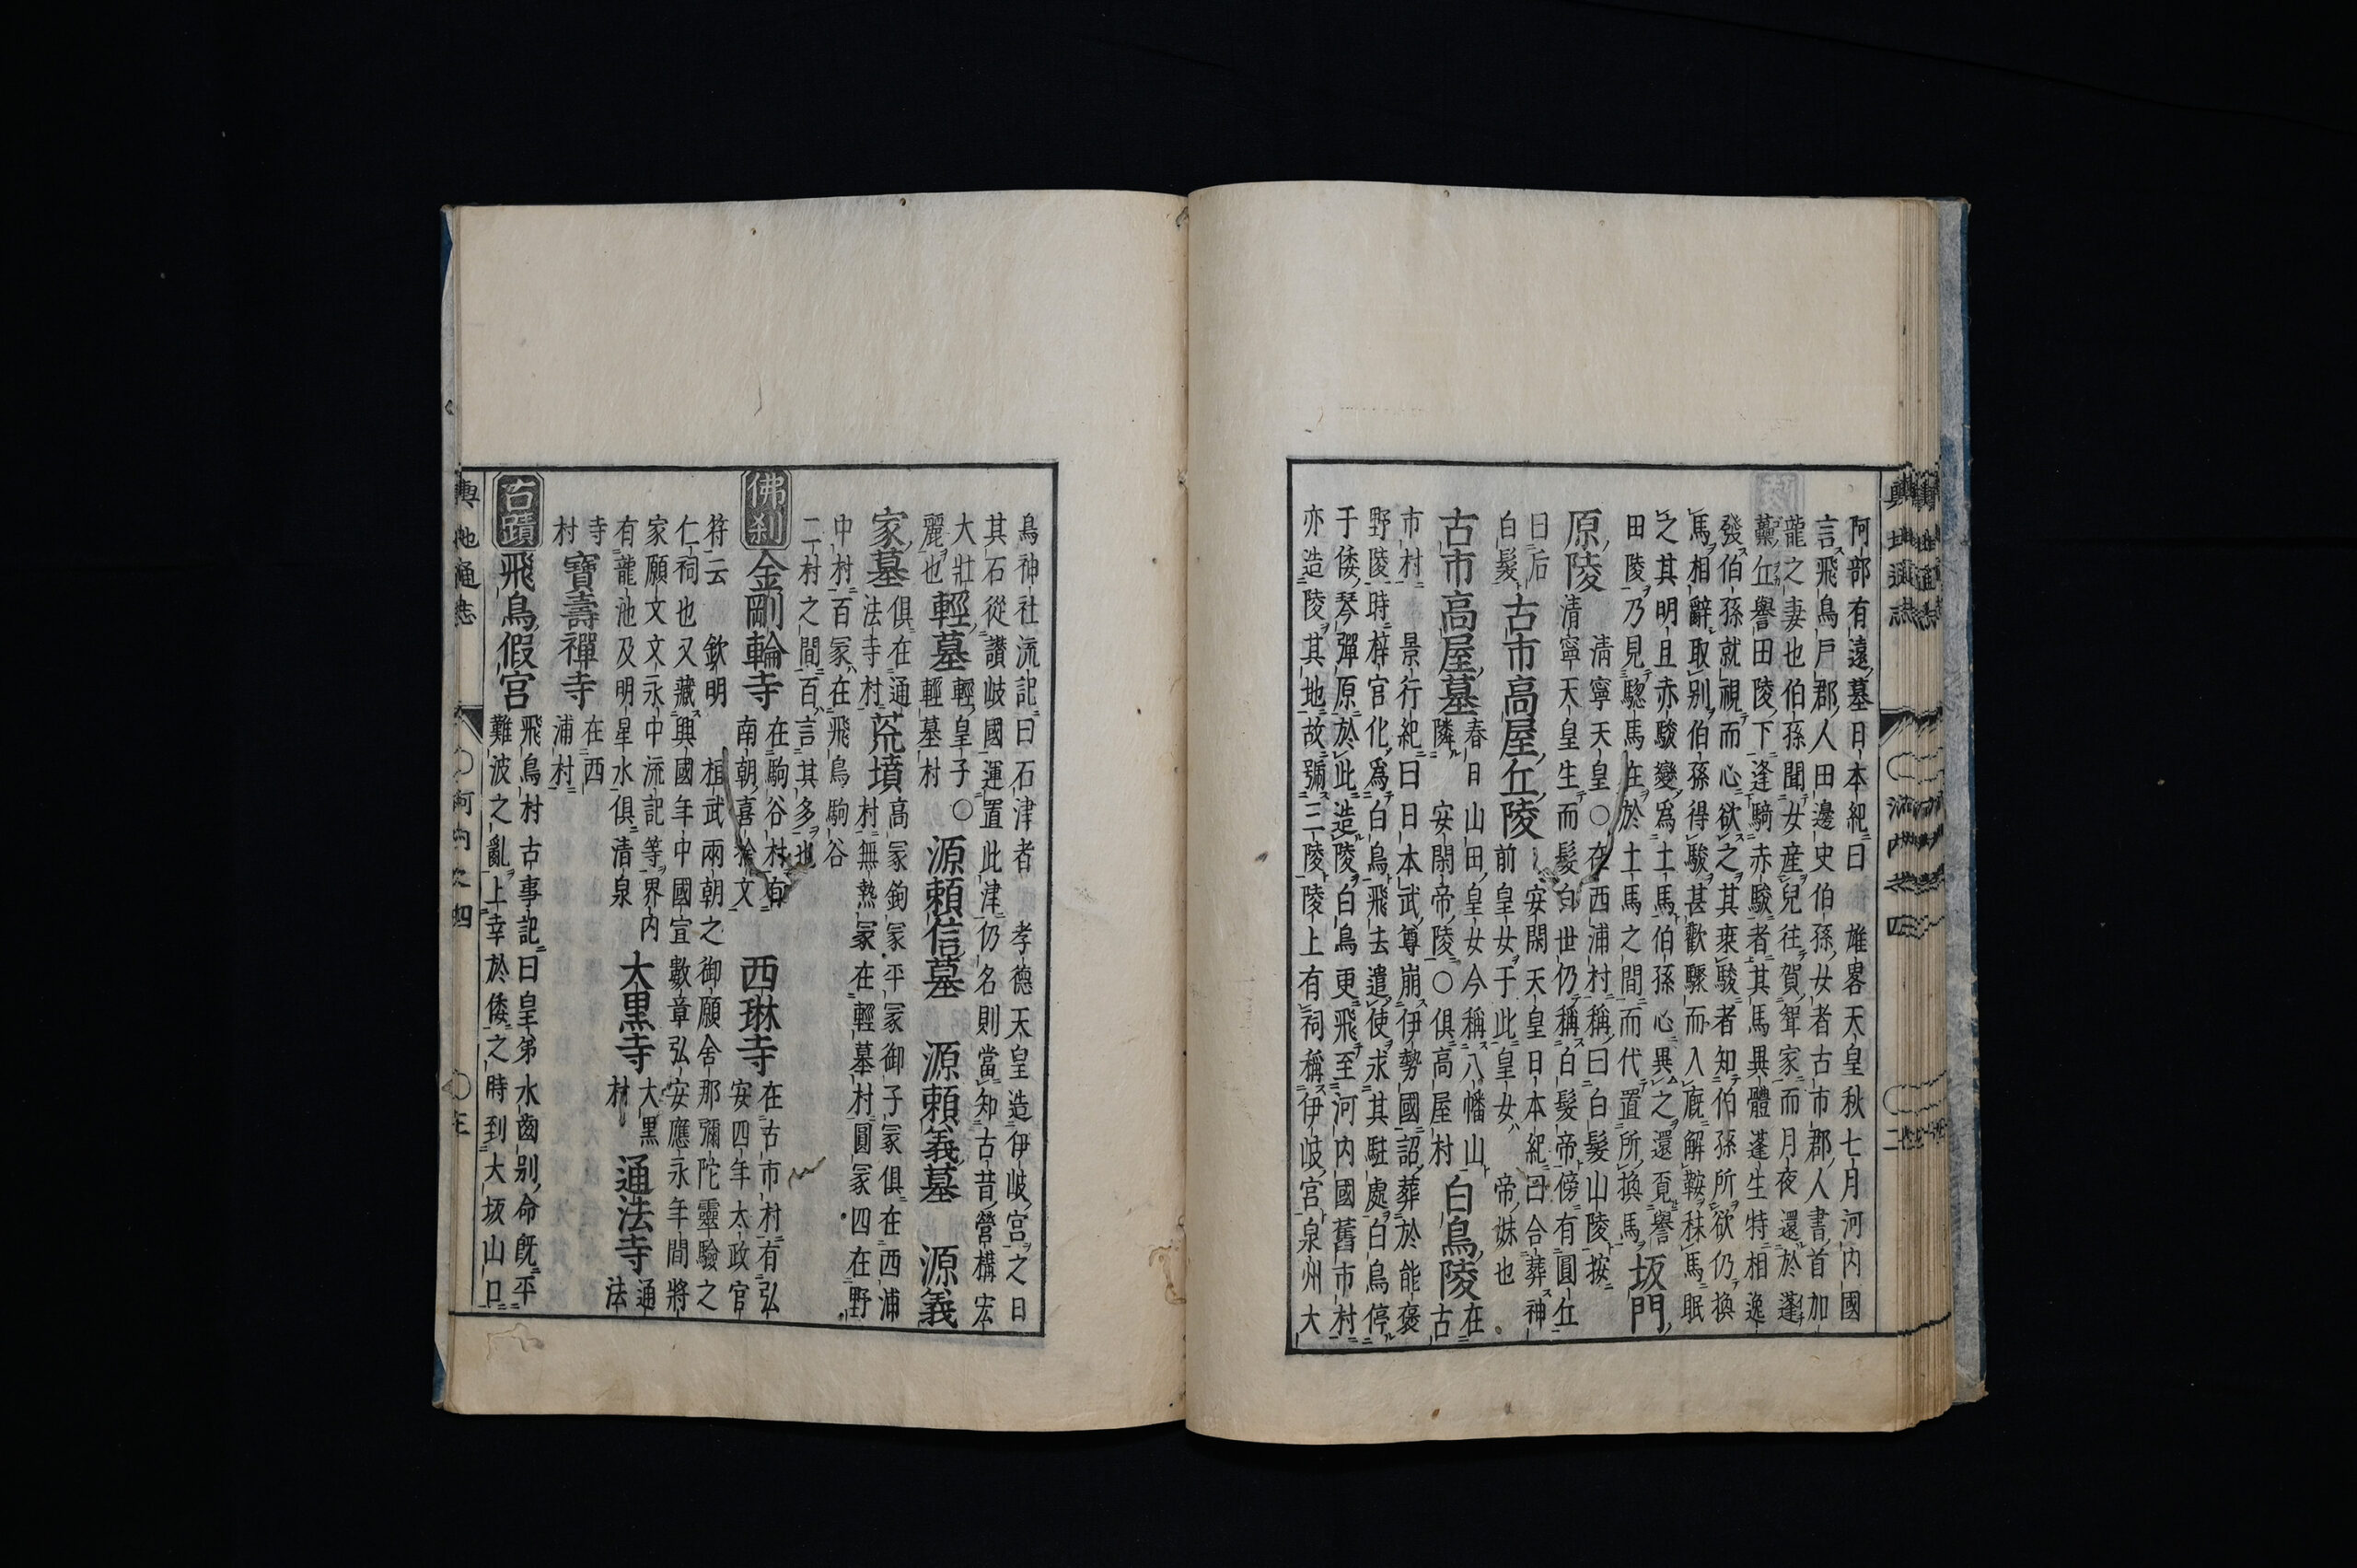 阿部有遠墓日本紀曰　雄畧天皇秋七月河内國
言飛鳥戸郡人田邊史伯孫女者古市郡人書首加
龍之妻也伯孫聞女産兒往賀聟家而月夜還於蓬
蘽丘譽田陵下逢騎赤駿者其馬異體蓬生特相逸
發伯孫就視而心欲之其乗駿者知伯孫所欲仍換
馬相辭取別伯孫得駿甚歡驟而入廐解鞍秣馬眠
之其明旦赤駿變為土馬伯孫心異之還覓譽
田陵乃見驄馬在於土馬之間而代置所換馬
坂門
原陵
清寧天皇○在西浦村稱曰白髮山陵按
清寧天皇生而髮白世仍稱白髮帝傍有圓丘
曰后
白髮
古市高屋丘陵
安閑天皇日本紀曰合葬神
前皇女于此皇女帝妹也
古市高屋墓
春日山田皇女今稱八幡山
隣安閑帝陵○俱高屋村
白鳥陵
在古
市村　景行紀曰日本武尊崩伊勢國詔葬於能褒
野陵時梓官化為白鳥飛去遣使求其駐處白鳥停
于倭琴彈原於此造陵白鳥更飛至河内國舊市村
亦造陵其地故號三陵陵上有祠稱伊岐宮泉州大
輿地通志
河内之四
鳥神社流記曰石津者　孝德天皇造伊岐宮之日
其石從讃岐國運置此津仍名則當知古昔營構宏
大壯
麗也
輕墓
輕皇子○
輕墓村
源賴信墓
源賴義墓
源義
家墓
俱在通
法寺村
荒墳
高冢鉤冢平冢御子冢俱在西浦
村無熱冢在輕墓村圓冢四在野
中村百冢在飛鳥駒谷
二村之間百言其多也
佛刹
金剛輪寺
在駒谷村有
南朝喜捨文
西琳寺
在古市村有弘
安四年太政官
符云　欽明　桓武兩朝之御願舍那彌陀靈驗之
仁祠也又藏興國年中國宣數章弘安應永年間將
家願文文永中流記等界内
有龍池及明星水俱清泉
大黒寺
大黒
村
通法寺
通
法
寺
村
寶壽禪寺
在西
浦村
古蹟
飛鳥假宮
飛鳥村古事記曰皇弟水齒别命既平
難波之亂上幸於倭之時到大坂山口
輿地通志
河内之四